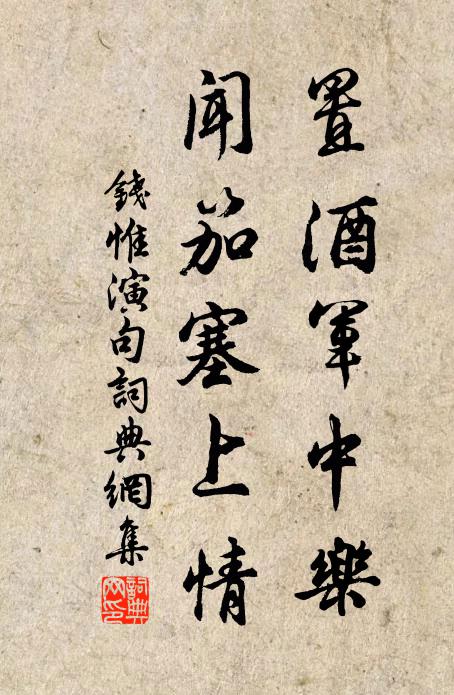 置酒軍中樂
聞笳塞上情
錢惟演句詞典網集
詞典網印